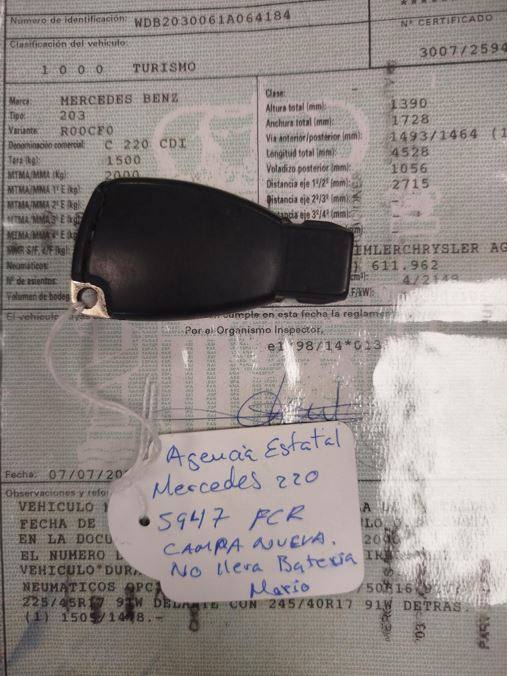 Número de identificación: WDB2030061A064184
Nº CERTIFICADO
Clasificación del vehículo:
3007/2594
1 0 0 0 TURISMO
Marca: MERCEDES BENZ
Tipo: 203
Variante: R00CF0
Denominación comercial: C 220 CDI
Tara (kg): 1500
MTMA/MMA (kg): 2000
MTMA/MMA 1º E (kg)
MTMA/MMA 2º E
MTMA/MMA 3º E (k
MTMA/MMA 4º E
MMR S/F, c/F (kg)
Neumáticos:
Nº de asientos:
Volumen de bodeg
Clase: -
Altura total (mm): 1390
Anchura total (mm): 1728
Vía anterior/posterior (mm): 1493/1464 (1
Longitud total (mm): 4528
Voladizo posterior (mm): 1056
Distancia eje 1º/2º (mm): 2715
Distancia eje 2º/3º (mm): -
ncia eje 3º/4º (mm): -
IMLERCHRYSLER AG
611.962
4/2148
F/kW):
El vehículo
cumple en esta fecha la reglamen
Por el Organismo Inspector,
e1*98/14*013
Fecha: 07/07/20
Observaciones y refor
VEHICULO
FECHA DE
EN LA DOCU
EL NUMERO
VEHICULO DUR
NEUMATICOS OPC
225/45R17 91W DELANTE CON 245/40R17 91W DETRAS.
(1) 1505/1478.-
Agencia Estatal
Mercedes 220
5947 FCR
CAMPA NUEVA.
No lleva Bateria
Mario